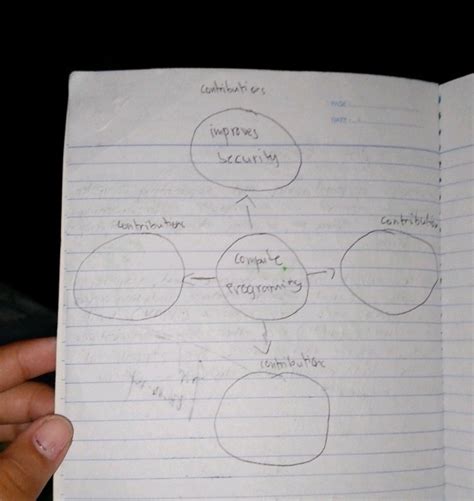 contributiers
PAGE:
DATE:
improves
security
contributiers
contributiers
compute
programity
contributiers